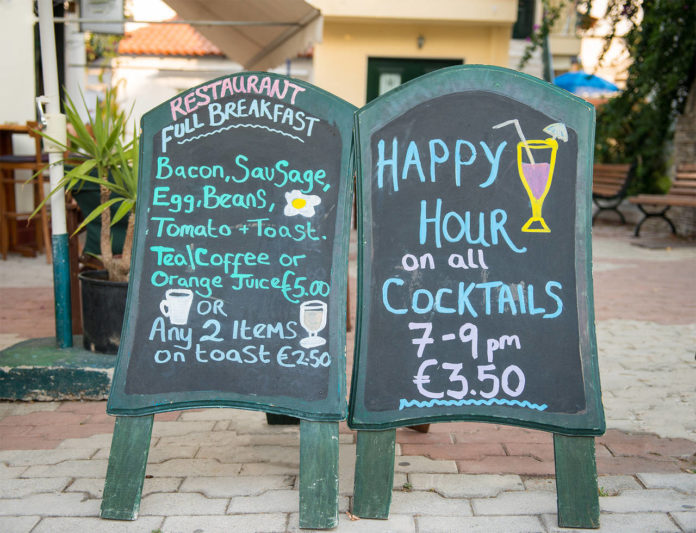 RESTAURANT
FULL BREAKFAST
Bacon, Sausage,
Egg, Beans,
Tomato + Toast.
Tea/Coffee or
Orange Juice €5.00
OR
Any 2 Items
on toast €2.50
HAPPY
HOUR
on all
COCKTAILS
7-9pm
€3.50